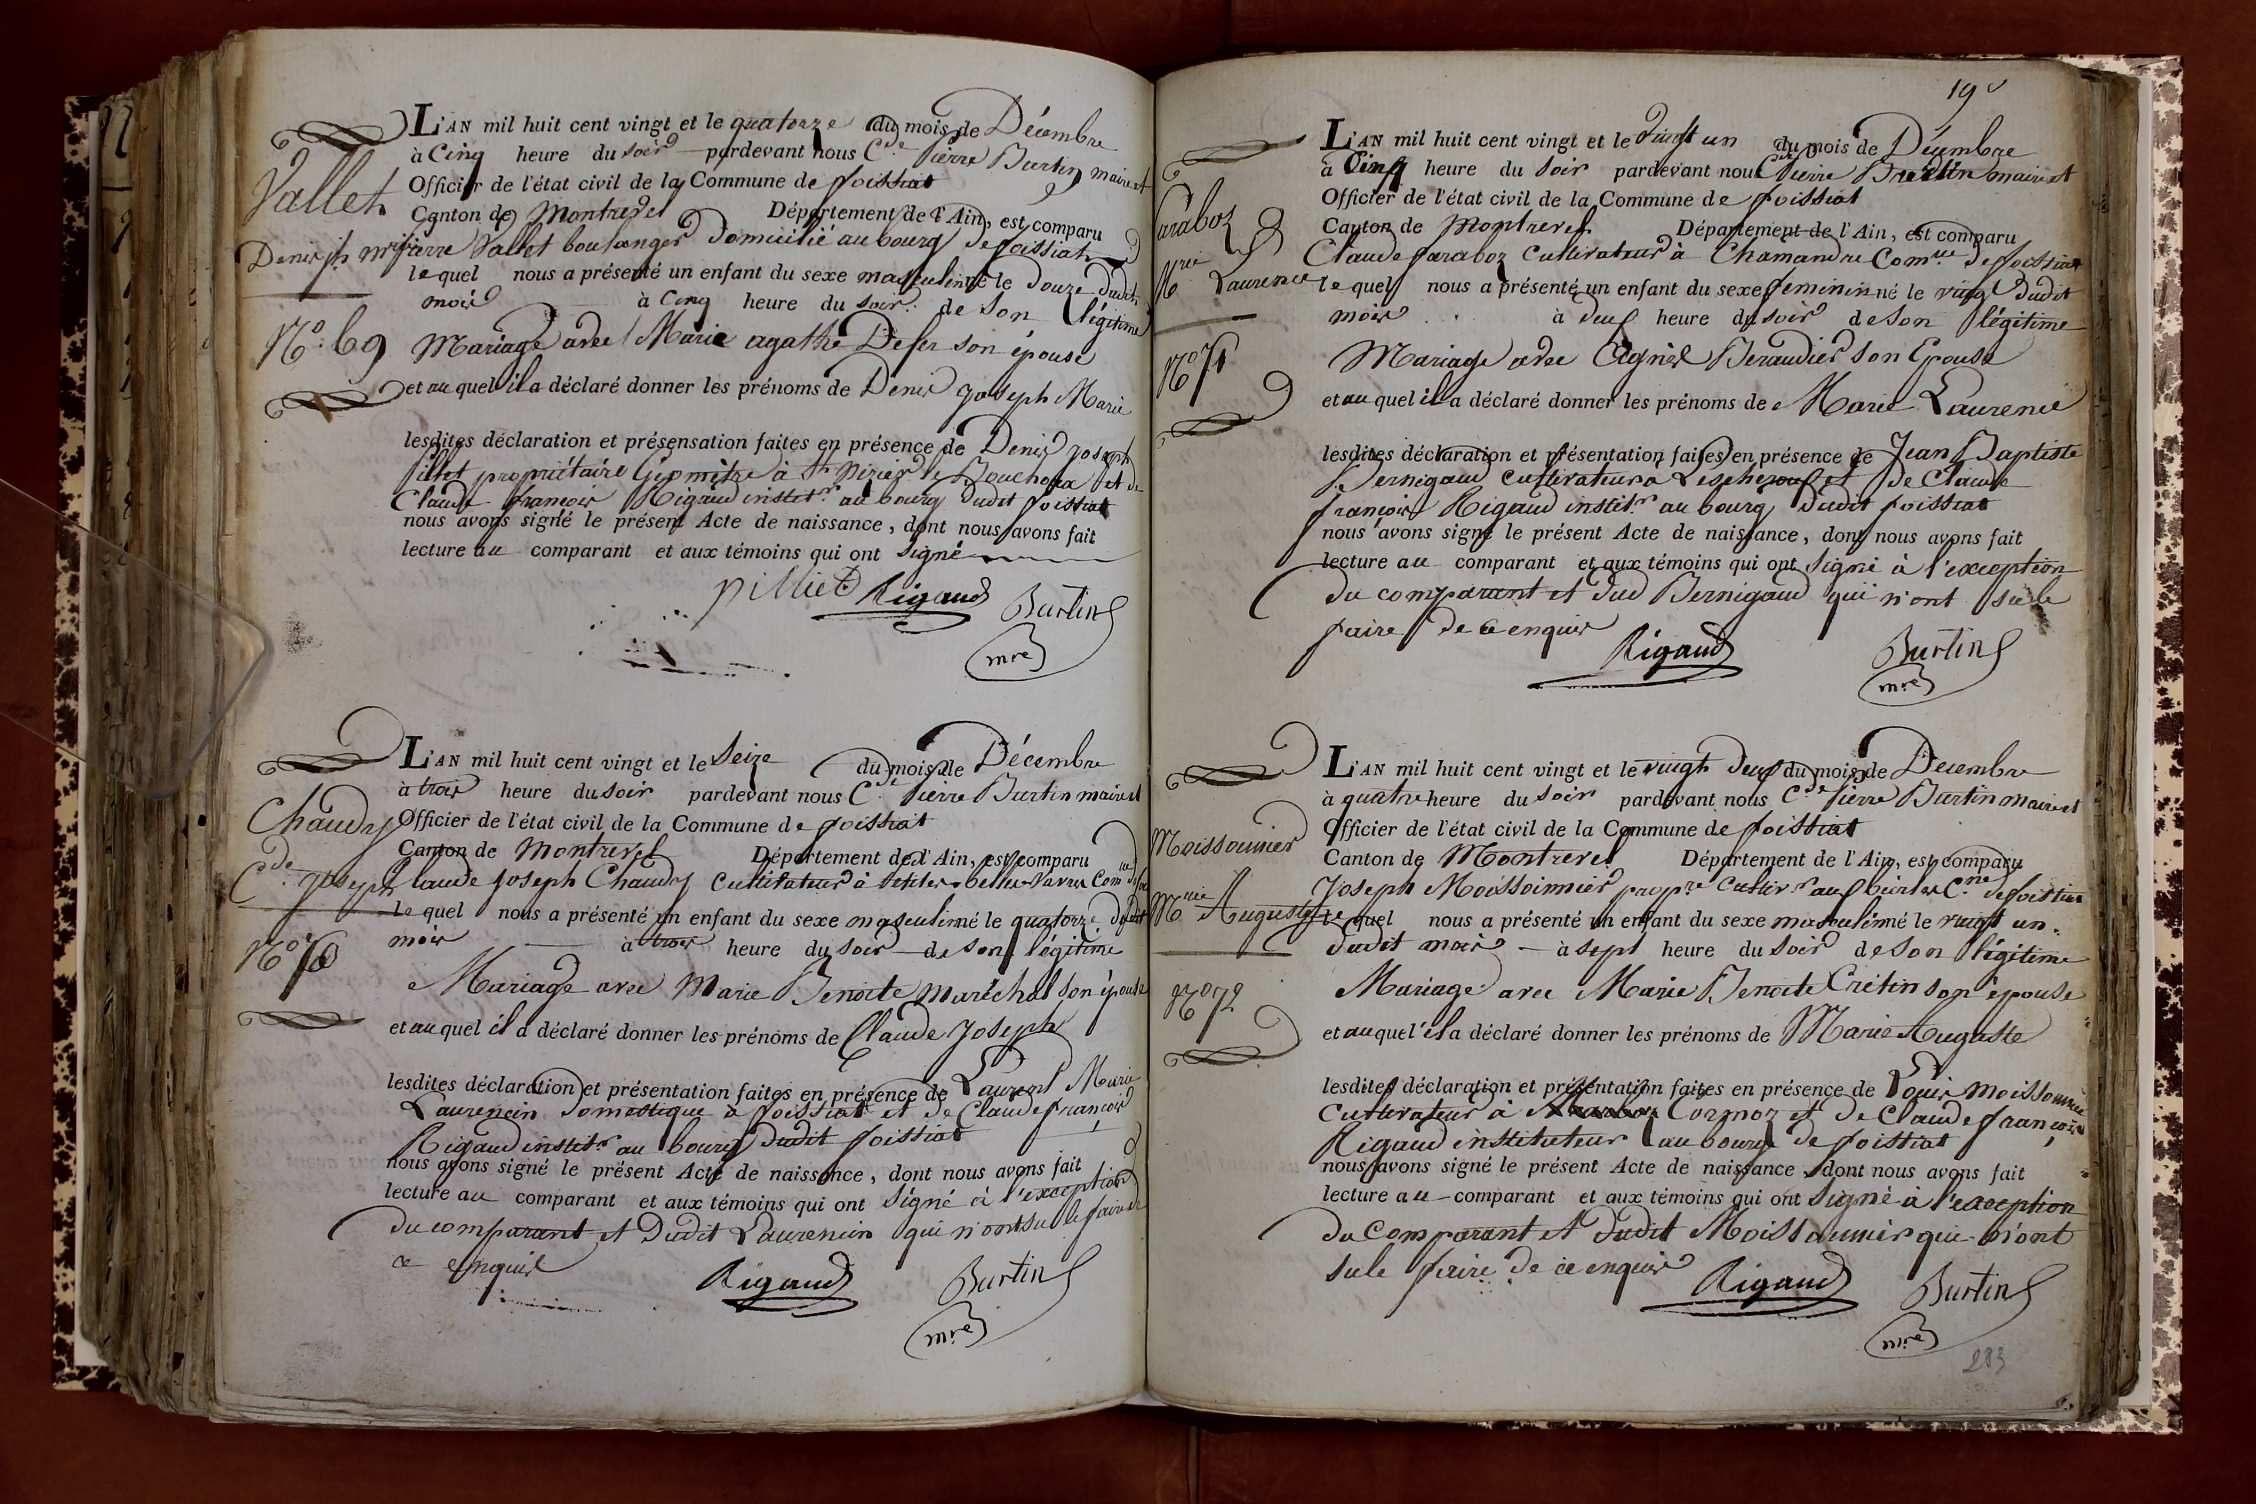 L'AN mil huit cent vingt et le quatorze du mois de Décembre
à Cinq heure du soir pardevant nous C.de Pierre Burtin maire et
Vallet
Officier de l'état civil de la Commune de foissiat
Canton de Montrevel Département de l'Ain, est comparu
Denis jh. m.
pierre Vallet boulanger domicilié au bourg de foissiat
le quel nous a présenté un enfant du sexe masculin né le douze dudit
mois à Cinq heure du soir de son légitime
N.o 69
Mariage avec Marie agathe Defer son épouse
et au quel il a déclaré donner les prénoms de Denis joseph Marie
lesdites déclaration et présensation faites en présence de Denis joseph
pillet propriétaire Géomètre à St. Nizier le Bouchoux et de
Claude françois Rigaud instit.r au bourg dudit foissiat
nous avons signé le présent Acte de naissance, dont nous avons fait
lecture au comparant et aux témoins qui ont signé
pilliet Rigaud Burtin
mre
L'AN mil huit cent vingt et le Seize du mois de Décembre
à trois heure du soir pardevant nous C.de Pierre Burtin maire et
Chaudy
Officier de l'état civil de la Commune de foissiat
Canton de Montrevel Département de l'Ain, est comparu
C.de joseph
Claude joseph Chaudy Cultivateur à belles Com.ne de
le quel nous a présenté un enfant du sexe masculin né le quatorze dudit
mois à trois heure du soir de son légitime
N.o 70
Mariage avec Marie Benoite Maréchal son épouse
et au quel il a déclaré donner les prénoms de Claude Joseph
lesdites déclaration et présentation faites en présence de Laurent Marie
Laurencin domestique à foissiat et de Claude françois
Rigaud instit.r au bourg dudit foissiat
nous avons signé le présent Acte de naissance, dont nous avons fait
lecture au comparant et aux témoins qui ont signé à l'exception
du comparant et dudit Laurencin qui n'ont su le faire de
ce enquis
Rigaud Burtin
mre
19
L'AN mil huit cent vingt et le vingt un du mois de Décembre
à Cinq heure du soir pardevant nous C.de Pierre Burtin maire et
Officier de l'état civil de la Commune de foissiat
faraboz
Canton de Montrevel Département de l'Ain, est comparu
Claude faraboz Cultivateur à Chamandre Com.ne de foissiat
M.rie Laurence
le quel nous a présenté un enfant du sexe feminin né le vingt dudit
mois à deux heure du soir de son légitime
N.o 71
Mariage avec Agnès Beraudier son Epouse
et au quel il a déclaré donner les prénoms de Marie Laurence
lesdites déclaration et présentation faites en présence de Jean Baptiste
Bernigaud cultivateur à Lescheroux et de Claude
françois Rigaud instit.r au bourg dudit foissiat
nous avons signé le présent Acte de naissance, dont nous avons fait
lecture au comparant et aux témoins qui ont signé à l'exception
du comparant et dud Bernigaud qui n'ont su le
faire de ce enquis
Rigaud Burtin
mre
L'AN mil huit cent vingt et le vingt deux du mois de Decembre
à quatre heure du soir pardevant nous C.de Pierre Burtin maire et
Moissonnier
Officier de l'état civil de la Commune de foissiat
Canton de Montrevel Département de l'Ain, est comparu
Joseph Moissonnier prop.re cultiv.r aux C.ne de foissiat
M.rie Auguste
le quel nous a présenté un enfant du sexe masculin né le vingt un
dudit mois à sept heure du soir de son légitime
N.o 72
Mariage avec Marie Benoite Cretin son épouse
et au quel il a déclaré donner les prénoms de Marie Auguste
lesdites déclaration et présentation faites en présence de Louis Moissonnier
Cultivateur à Cormoz et de Claude françois
Rigaud instituteur au bourg de foissiat
nous avons signé le présent Acte de naissance, dont nous avons fait
lecture au comparant et aux témoins qui ont signé à l'exception
du comparant et dudit Moissonnier qui n'ont
su le faire de ce enquis
Rigaud Burtin
mre
283